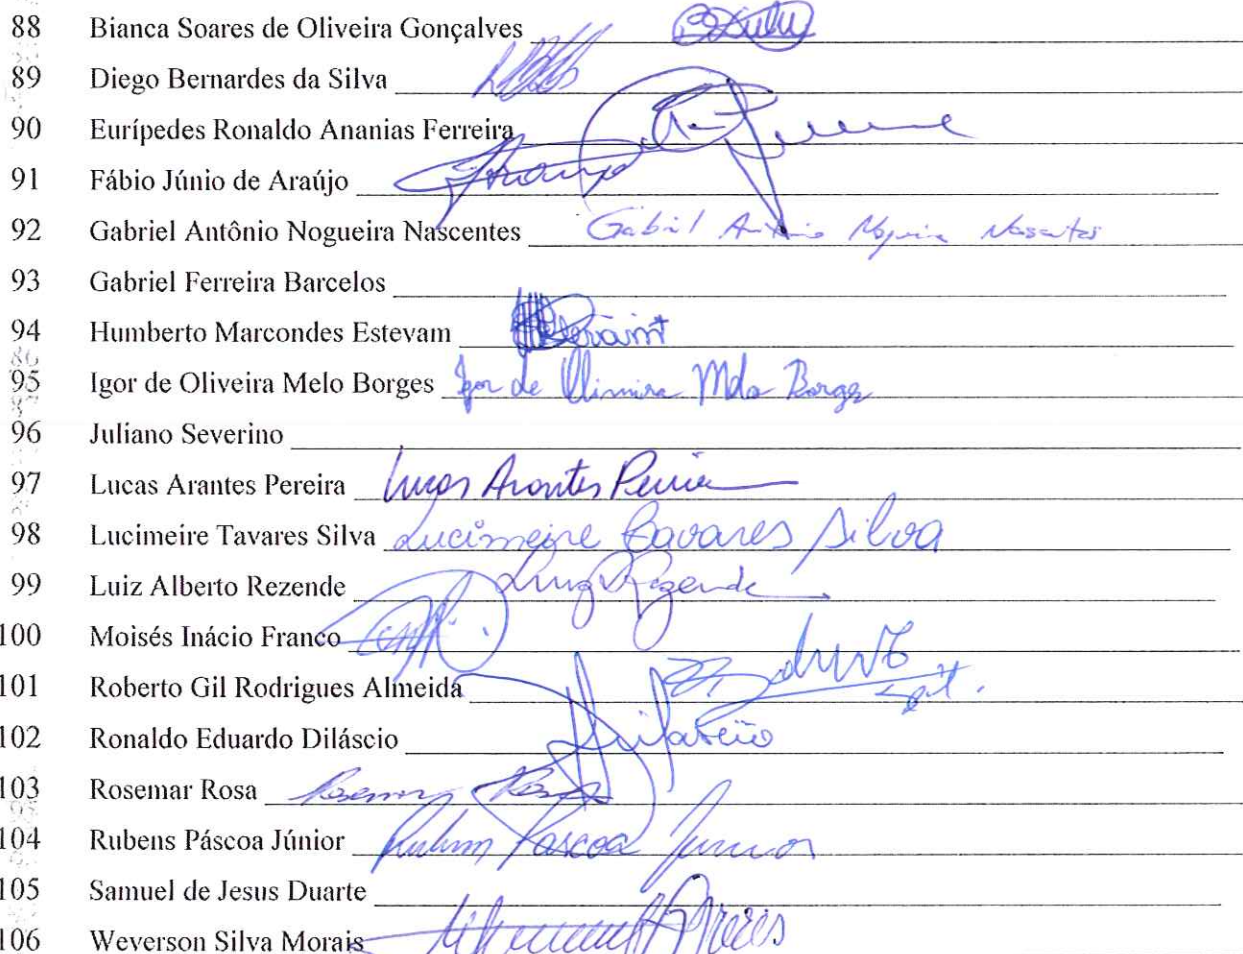 88 Bianca Soares de Oliveira Gonçalves
89 Diego Bernardes da Silva
90 Eurípedes Ronaldo Ananias Ferreira
91 Fábio Júnio de Araújo
92 Gabriel Antônio Nogueira Nascentes Gabriel Antônio Nogueira Nascentes
93 Gabriel Ferreira Barcelos
94 Humberto Marcondes Estevam
95 Igor de Oliveira Melo Borges Igor de Oliveira Melo Borges
96 Juliano Severino
97 Lucas Arantes Pereira Lucas Arantes Pereira
98 Lucimeire Tavares Silva Lucimeire Tavares Silva
99 Luiz Alberto Rezende Luiz Rezende
100 Moisés Inácio Franco
101 Roberto Gil Rodrigues Almeida
102 Ronaldo Eduardo Diláscio
103 Rosemar Rosa Rosemar Rosa
104 Rubens Páscoa Júnior Rubens Pascoa Junior
105 Samuel de Jesus Duarte
106 Weverson Silva Morais